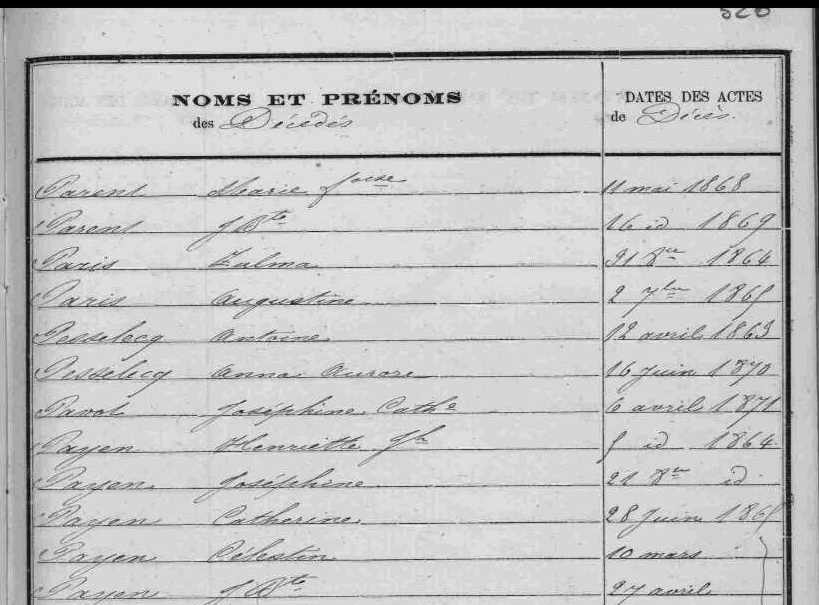 526
NOMS ET PRÉNOMS
des Décédés
DATES DES ACTES
de Décès.
Parent Marie Jacse 11 mai 1868
Parent J Bte 16 id 1869
Paris Zulma 31 8bre 1864
Paris Augustine 2 7bre 1865
Pesselecq Antoine 12 avril 1863
Pesselecq Anna Aurore 16 Juin 1870
Pavot Joséphine Cathe 6 avril 1871
Payen Henriette Jh 5 id 1864
Payen Joséphine 21 8bre id
Payen Catherine 28 Juin 1865
Payen Célestin 10 mars
Payen J Bte 27 avril